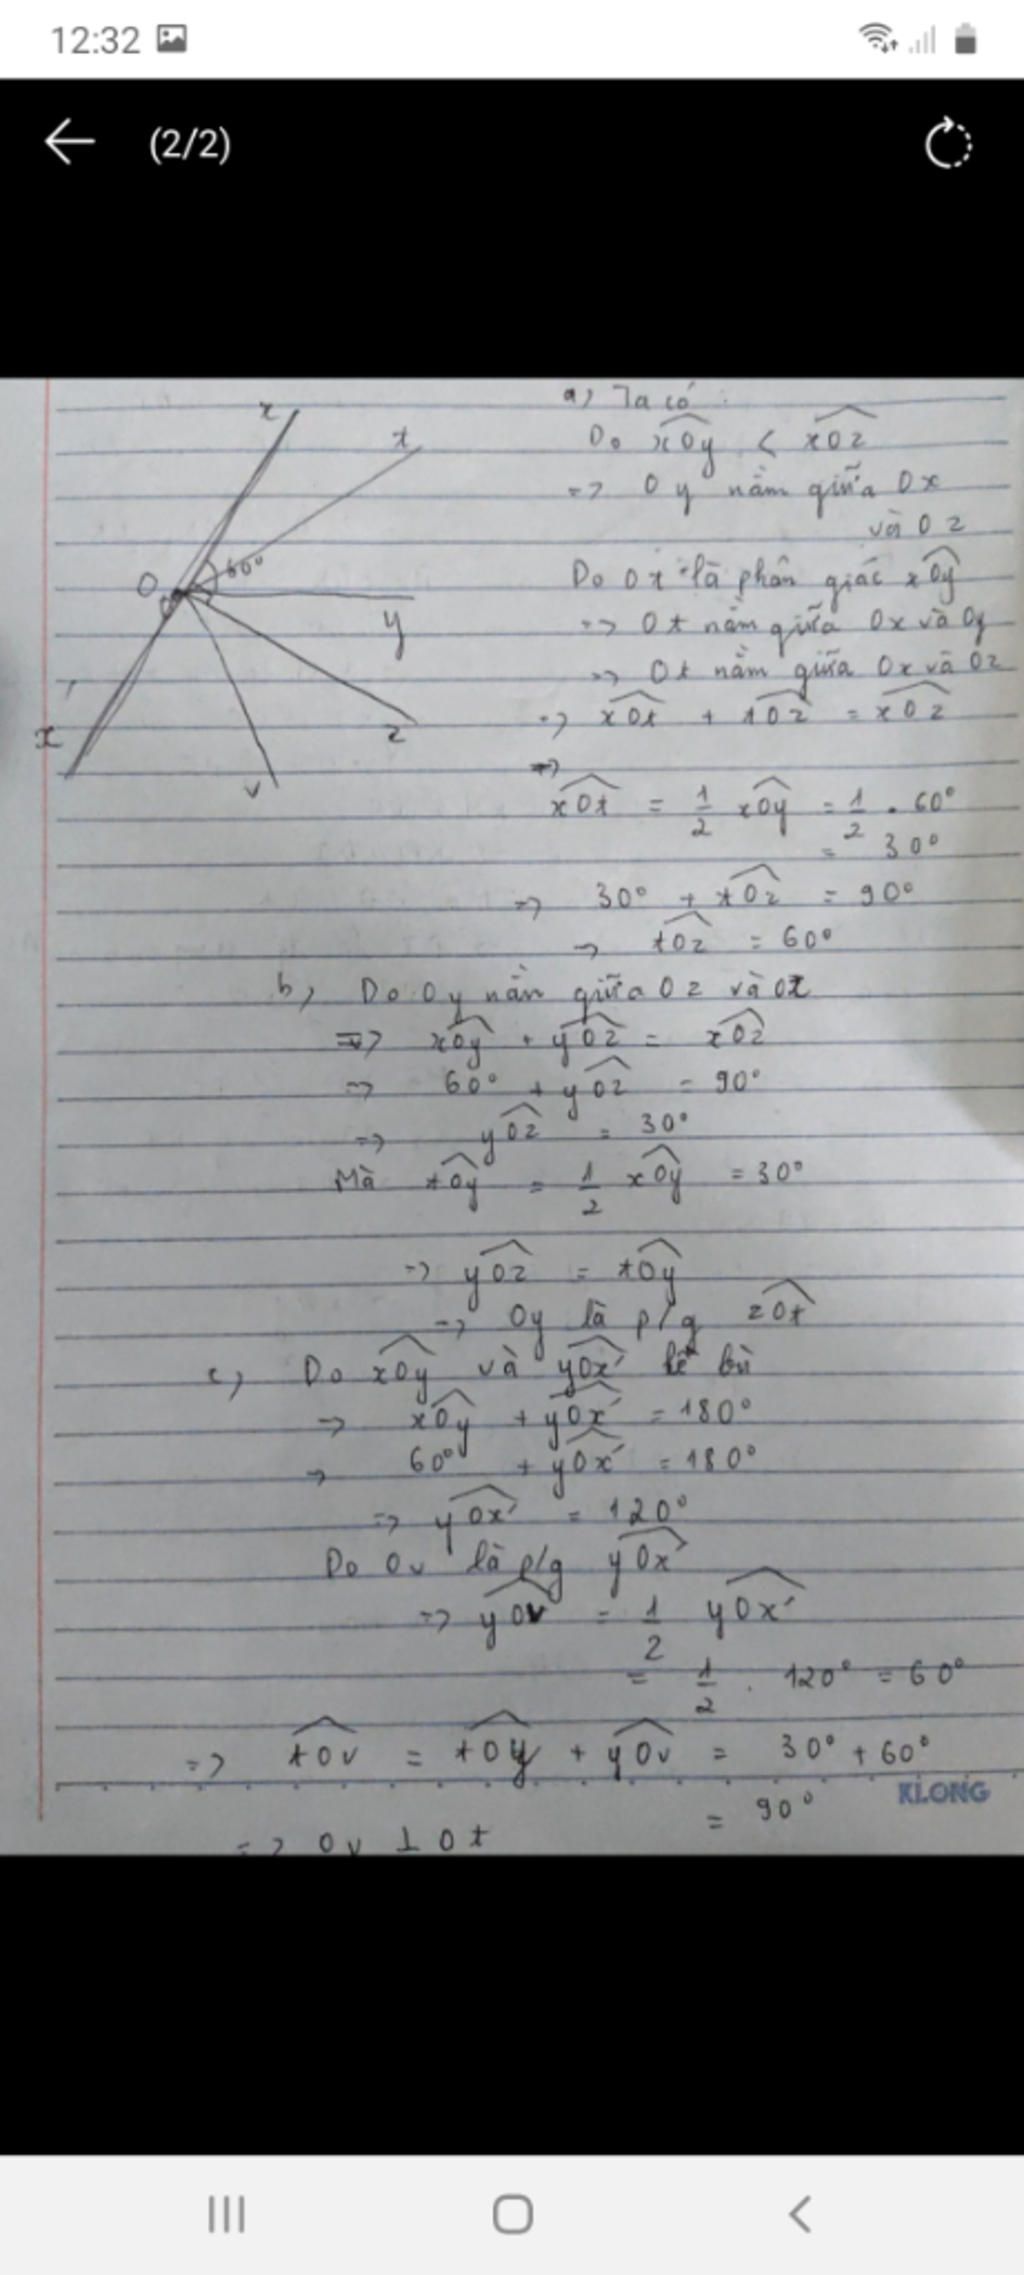 12:32
(2/2)
a) Ta có :
x
t
Do xOy < xOz
=> Oy nằm giữa Ox
và Oz
60°
O
y
Do Ot là phân giác xOy
=> Ot nằm giữa Ox và Oy
=> Ot nằm giữa Ox và Oz
=> xOt + tOz = xOz
x'
z
v
=>
xOt = 1/2 xOy = 1/2 . 60°
= 30°
=> 30° + tOz = 90°
=> tOz = 60°
b) Do Oy nằn giữa Oz và Ox
=> xOy + yOz = xOz
=> 60° + yOz = 90°
=> yOz = 30°
Mà tOy = 1/2 xOy = 30°
=> yOz = tOy
=> Oy là p/g zOt
c) Do xOy và yOx' kề bù
=> xOy + yOx' = 180°
=> 60° + yOx' = 180°
=> yOx' = 120°
Do Ov là p/g yOx'
=> yOv = 1/2 yOx'
= 1/2 . 120° = 60°
=> tOv = tOy + yOv = 30° + 60°
KLONG
= 90°
=> Ov ⊥ Ot